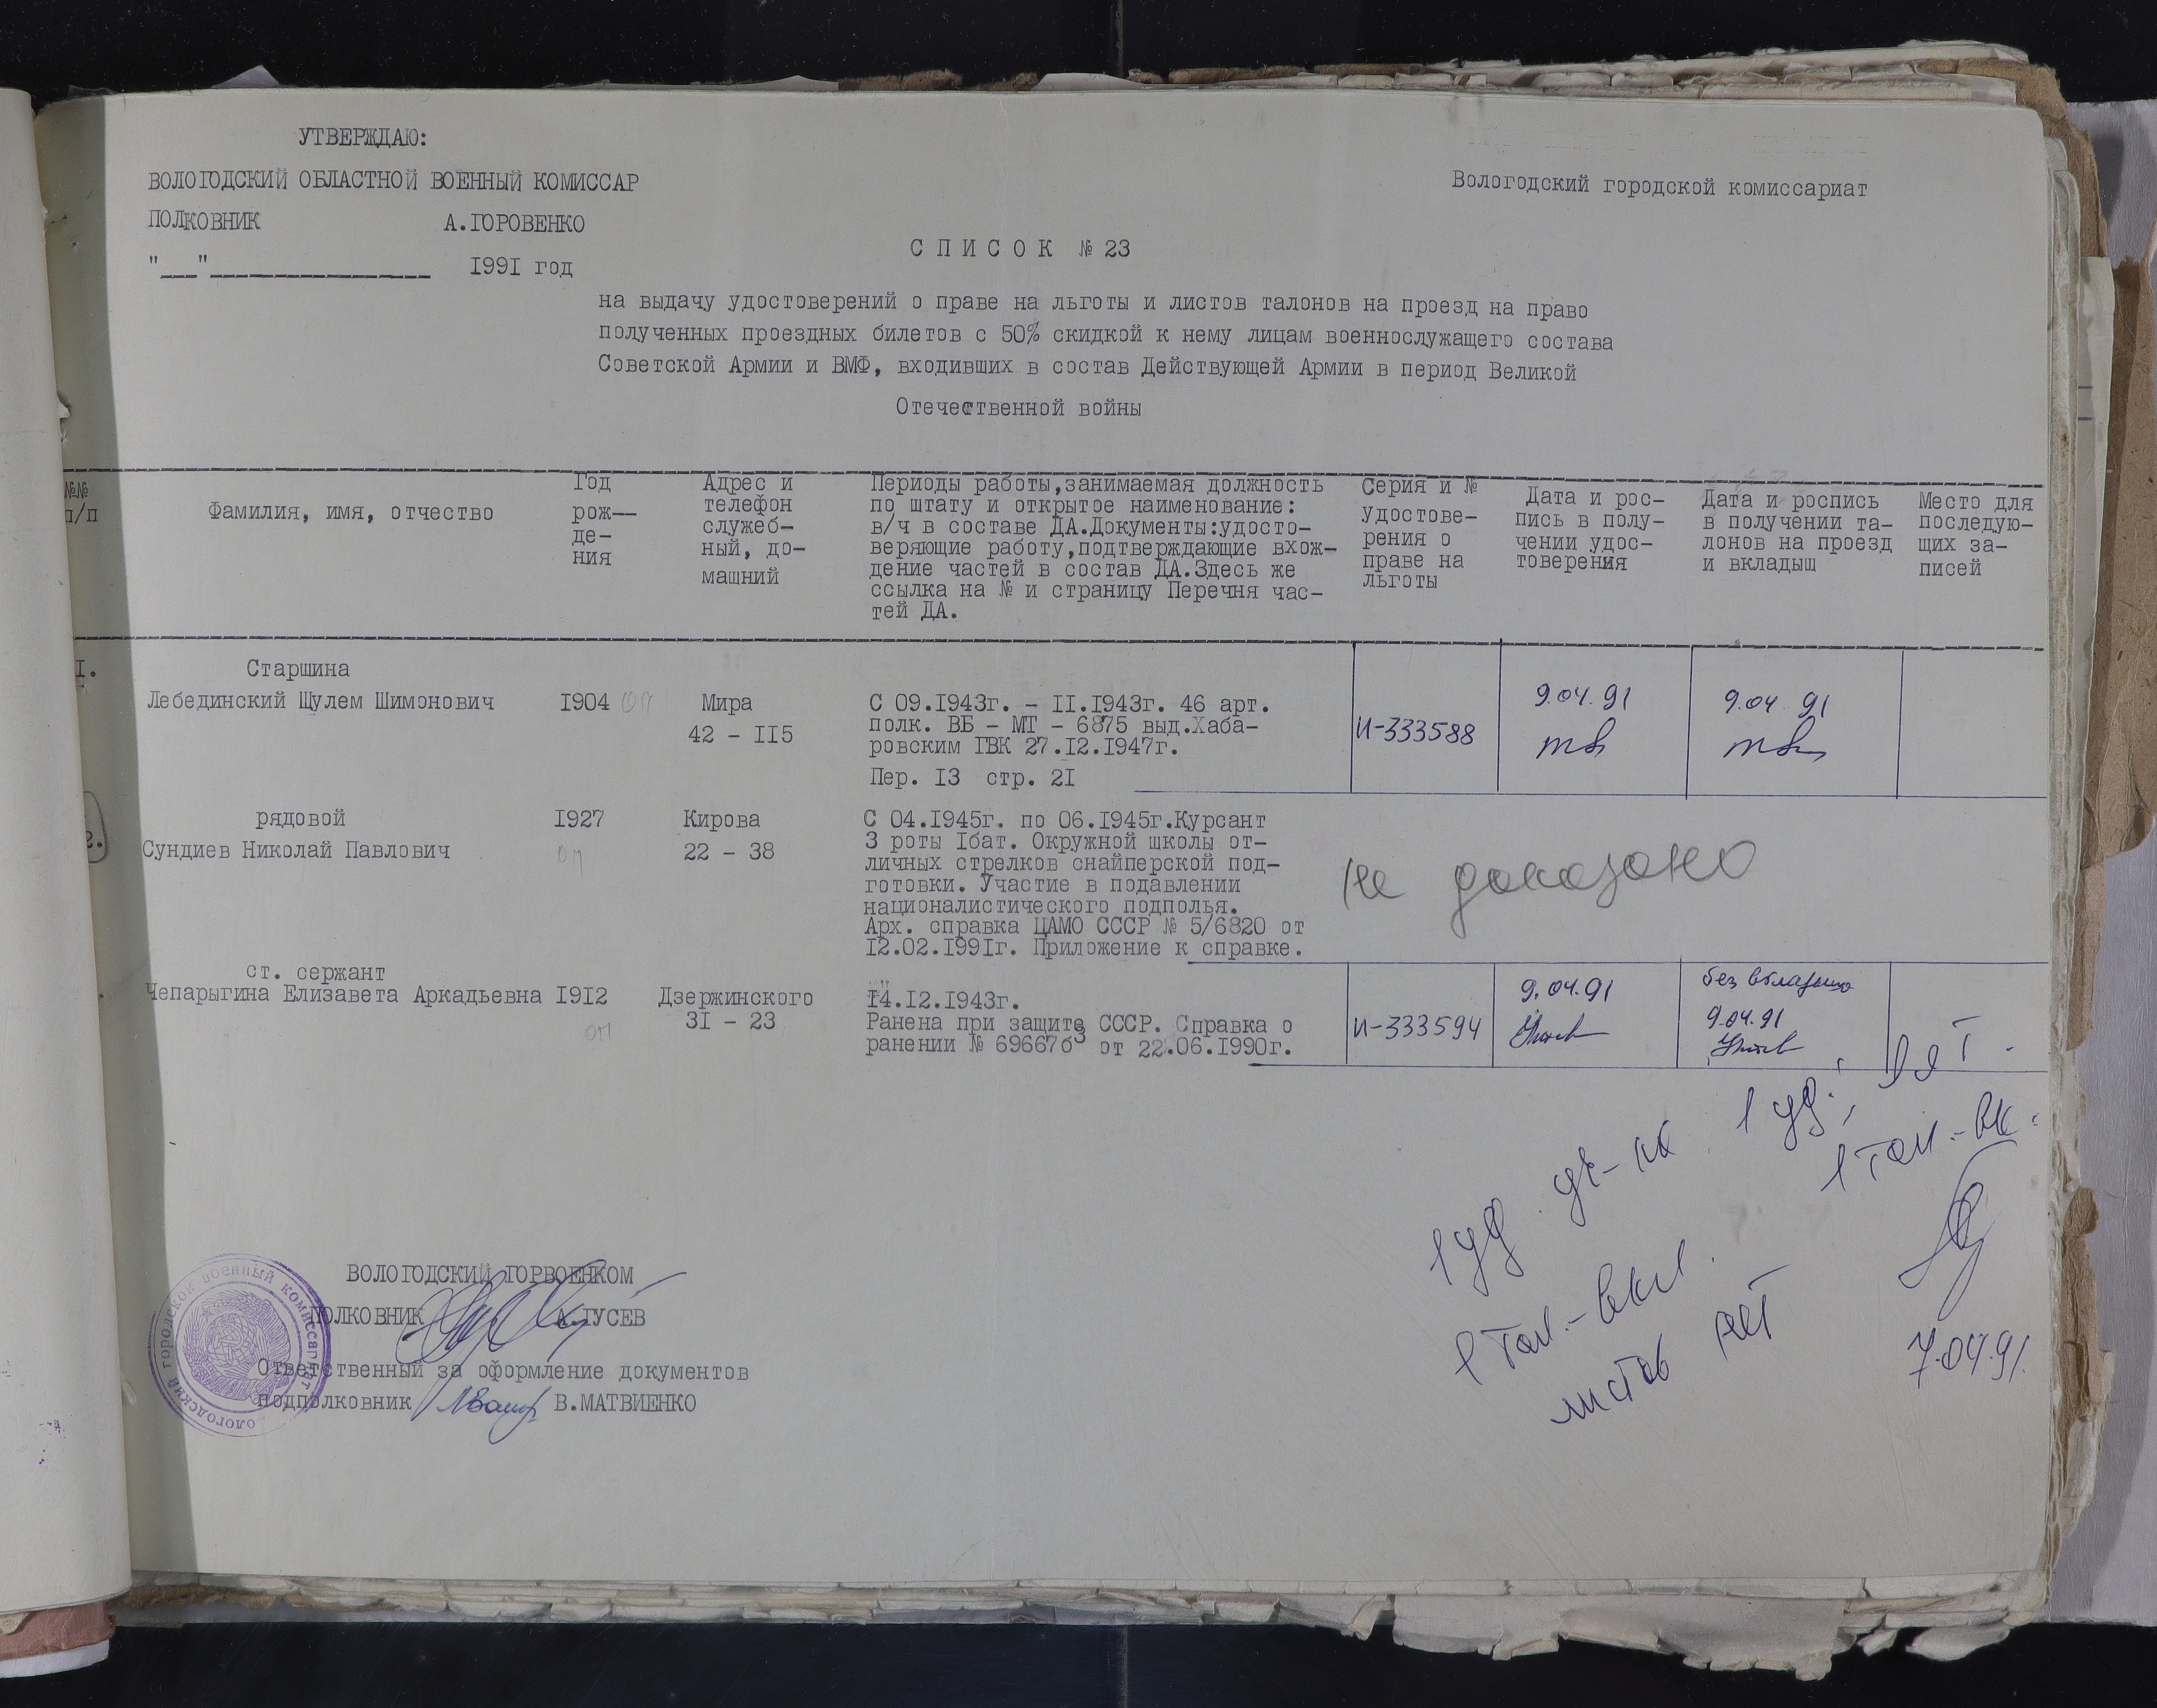 УТВЕРЖДАЮ:
ВОЛОГОДСКИЙ ОБЛАСТНОЙ ВОЕННЫЙ КОМИССАР
Вологодский городской комиссариат
ПОЛКОВНИК А.ГОРОВЕНКО
"__"____________ 1991 год
СПИСОК № 23
на выдачу удостоверений о праве на льготы и листов талонов на проезд на право
полученных проездных билетов с 50% скидкой к нему лицам военнослужащего состава
Советской Армии и ВМФ, входивших в состав Действующей Армии в период Великой
Отечественной войны
№№
п/п
Фамилия, имя, отчество
Год
рож-
де-
ния
Адрес и
телефон
служеб-
ный, до-
машний
Периоды работы,занимаемая должность
по штату и открытое наименование:
в/ч в составе ДА.Документы:удосто-
веряющие работу,подтверждающие вхож-
дение частей в состав ДА.Здесь же
ссылка на № и страницу Перечня час-
тей ДА.
Серия и №
удостове-
рения о
праве на
льготы
Дата и рос-
пись в полу-
чении удос-
товерения
Дата и роспись
в получении та-
лонов на проезд
и вкладыш
Место для
последую-
щих за-
писей
I.
Старшина
Лебединский Шулем Шимонович
1904 оп
Мира
42 - 115
С 09.1943г. - 11.1943г. 46 арт.
полк. ВБ - МТ - 6875 выд.Хаба-
ровским ГВК 27.12.1947г.
Пер. 13 стр. 21
И-333588
9.04.91
9.04 91
2.
рядовой
Сундиев Николай Павлович
1927
оп
Кирова
22 - 38
С 04.1945г. по 06.1945г.Курсант
3 роты 1бат. Окружной школы от-
личных стрелков снайперской под-
готовки. Участие в подавлении
националистического подполья.
Арх. справка ЦАМО СССР № 5/6820 от
12.02.1991г. Приложение к справке.
не доказано
ст. сержант
Чепарыгина Елизавета Аркадьевна
1912
оп
Дзержинского
31 - 23
14.12.1943г.
Ранена при защите СССР. Справка о
ранении № 69667б3 от 22.06.1990г.
И-333594
9.04.91
без вкладыша
9.04.91
1 уд. 1 уд.,
1 тал.-вк.
1 тал.-вкл.
листов нет
7.04.91.
ВОЛОГОДСКИЙ ГОРВОЕНКОМ
ПОЛКОВНИК А.ГУСЕВ
Ответственный за оформление документов
подполковник В.МАТВИЕНКО
Вологодский городской военный комиссариат